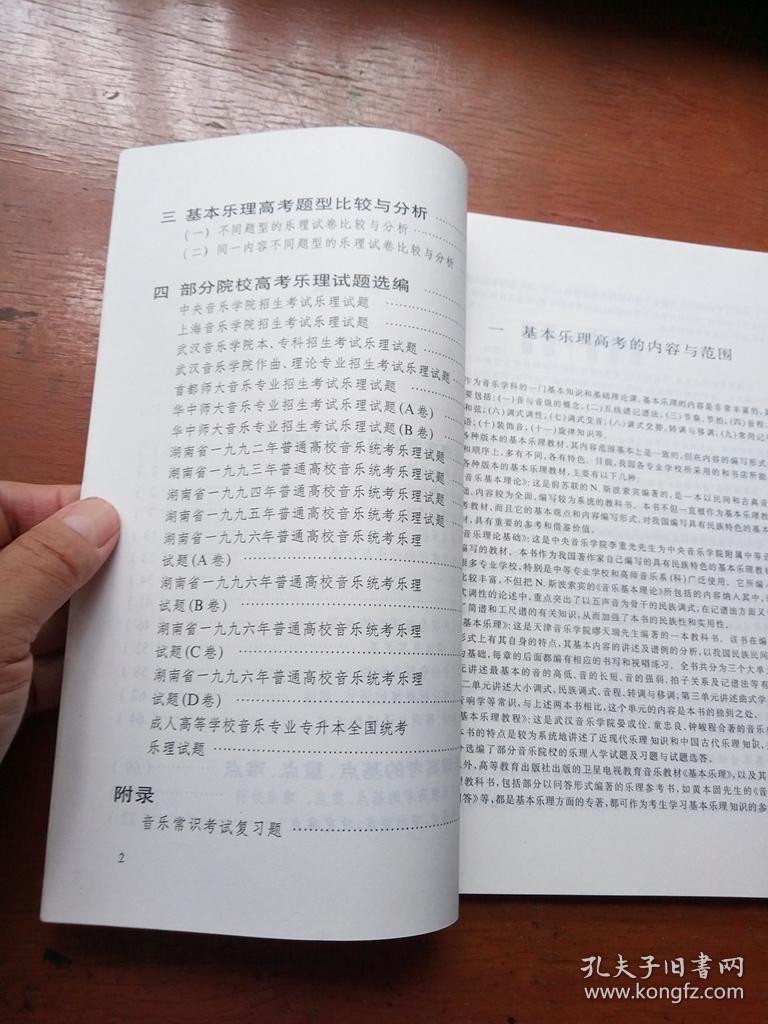 三 基本乐理高考题型比较与分析 ……
(一) 不同题型的乐理试卷比较与分析 ……
(二) 同一内容不同题型的乐理试卷比较与分析
四 部分院校高考乐理试题选编 ……
中央音乐学院招生考试乐理试题 ……
上海音乐学院招生考试乐理试题 ……
武汉音乐学院本、专科招生考试乐理试题 ……
武汉音乐学院作曲、理论专业招生考试乐理试题
首都师大音乐专业招生考试乐理试题 ……
华中师大音乐专业招生考试乐理试题(A卷) ……
华中师大音乐专业招生考试乐理试题(B卷) ……
湖南省一九九二年普通高校音乐统考乐理试题
湖南省一九九三年普通高校音乐统考乐理试题
湖南省一九九四年普通高校音乐统考乐理试题
湖南省一九九五年普通高校音乐统考乐理试题
湖南省一九九六年普通高校音乐统考乐理
试题(A卷) ……
湖南省一九九六年普通高校音乐统考乐理
试题(B卷) ……
湖南省一九九六年普通高校音乐统考乐理
试题(C卷) ……
湖南省一九九六年普通高校音乐统考乐理
试题(D卷) ……
成人高等学校音乐专业专升本全国统考
乐理试题 ……
附录
音乐常识考试复习题 ……
2
一 基本乐理高考的内容与范围
作为音乐学科的一门基本知识和基础理论课,基本乐理的内容是非常丰富的,其
要包括:(一)音与音级的概念;(二)五线谱记谱法;(三)节奏、节拍;(四)音程,
和弦;(六)调式调性,(七)调式变音;(八)调式交替、转调与移调;(九)常用记号
语;(十)装饰音;(十一)旋律知识等。
各种版本的基本乐理教材,其内容范围基本上是一致的,但在内容的编写形式
和顺序上,多有不同,各有特色。目前,我国各专业学校所采用的和书店所能
各种版本的基本乐理教材,主要有以下几种:
音乐基本理论》:这是前苏联的N.斯波索宾编著的,是一本以民间和古典音
础、内容较为全面,编写较为系统的教科书。本书不但一直被作为基本乐理教
考教材,而且它的基本观点和内容编写形式,对我国编写具有民族特色的基本
材,具有重要的参考和借鉴价值。
音乐理论基础》:这是中央音乐学院李重光先生为中央音乐学院附属中等音
编写的教材。本书作为我国著作家自己编写的具有民族特色的基本乐理教材
很多专业学校,特别是中等专业学校和高师音乐系(科)广泛使用。它所编
比较丰富,不但把N.斯波索宾的《音乐基本理论》所包括的内容纳入其中,而
式调性的论述中,重点突出了以五声音为骨干的民族调式;在记谱法方面又
了简谱和工尺谱的有关知识,从而加强了本书的民族性和实用性。
基本乐理》:这是天津音乐学院缪天瑞先生编著的一本教科书。该书在编
形式上有其自身的特点,其基本内容的讲述及谱例的分析,以我国民族民间
为基础,每章的后面都编有相应的书写和视唱练习。全书共分为三个大单
元讲述最基本的音的高低、音的长短、音的强弱、拍子关系及记谱法等有
二单元讲述大小调式、民族调式、音程、转调与移调;第三单元讲述曲式学
音响学等常识,与上述两本书相比,这个单元的内容是本书的独到之处。
基本乐理教程》:这是武汉音乐学院晏成佺、童忠良、钟峻程合著的音乐
本书的特点是较为系统地讲述了近现代乐理知识和中国古代乐理知识,并
选编了部分音乐院校的乐理入学试题及习题与试题选答。
外,高等教育出版社出版的卫星电视教育音乐教材《基本乐理》,以及其
理教科书,包括部分以问答形式编著的乐理参考书,如黄本固先生的《音
问答》等,都是基本乐理方面的专著,都可作为考生学习基本乐理知识的参
孔夫子旧书网
www.kongfz.com